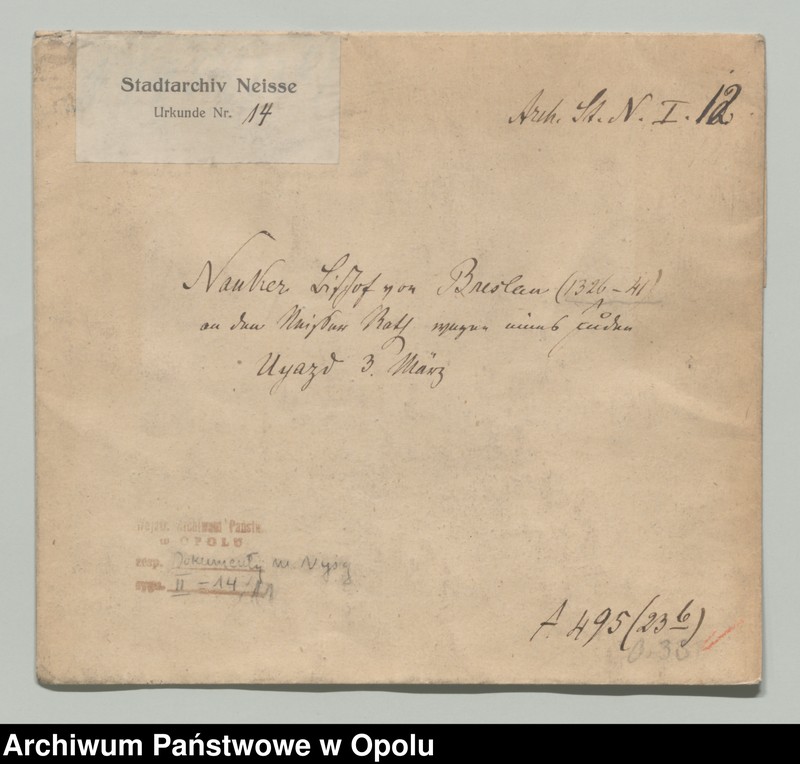 Stadtarchiv Neisse
Urkunde Nr. 14
Arch. St. N. I. 12
Nanker Bischof von Breslau (1326–41)
an den Neisser Rath wegen eines Juden
Ujazd 3. März
Archiwum Państw.
w OPOLU
zesp. Dokumenty m. Nysy
sygn. II – 14
A 495 (23b)
Archiwum Państwowe w Opolu